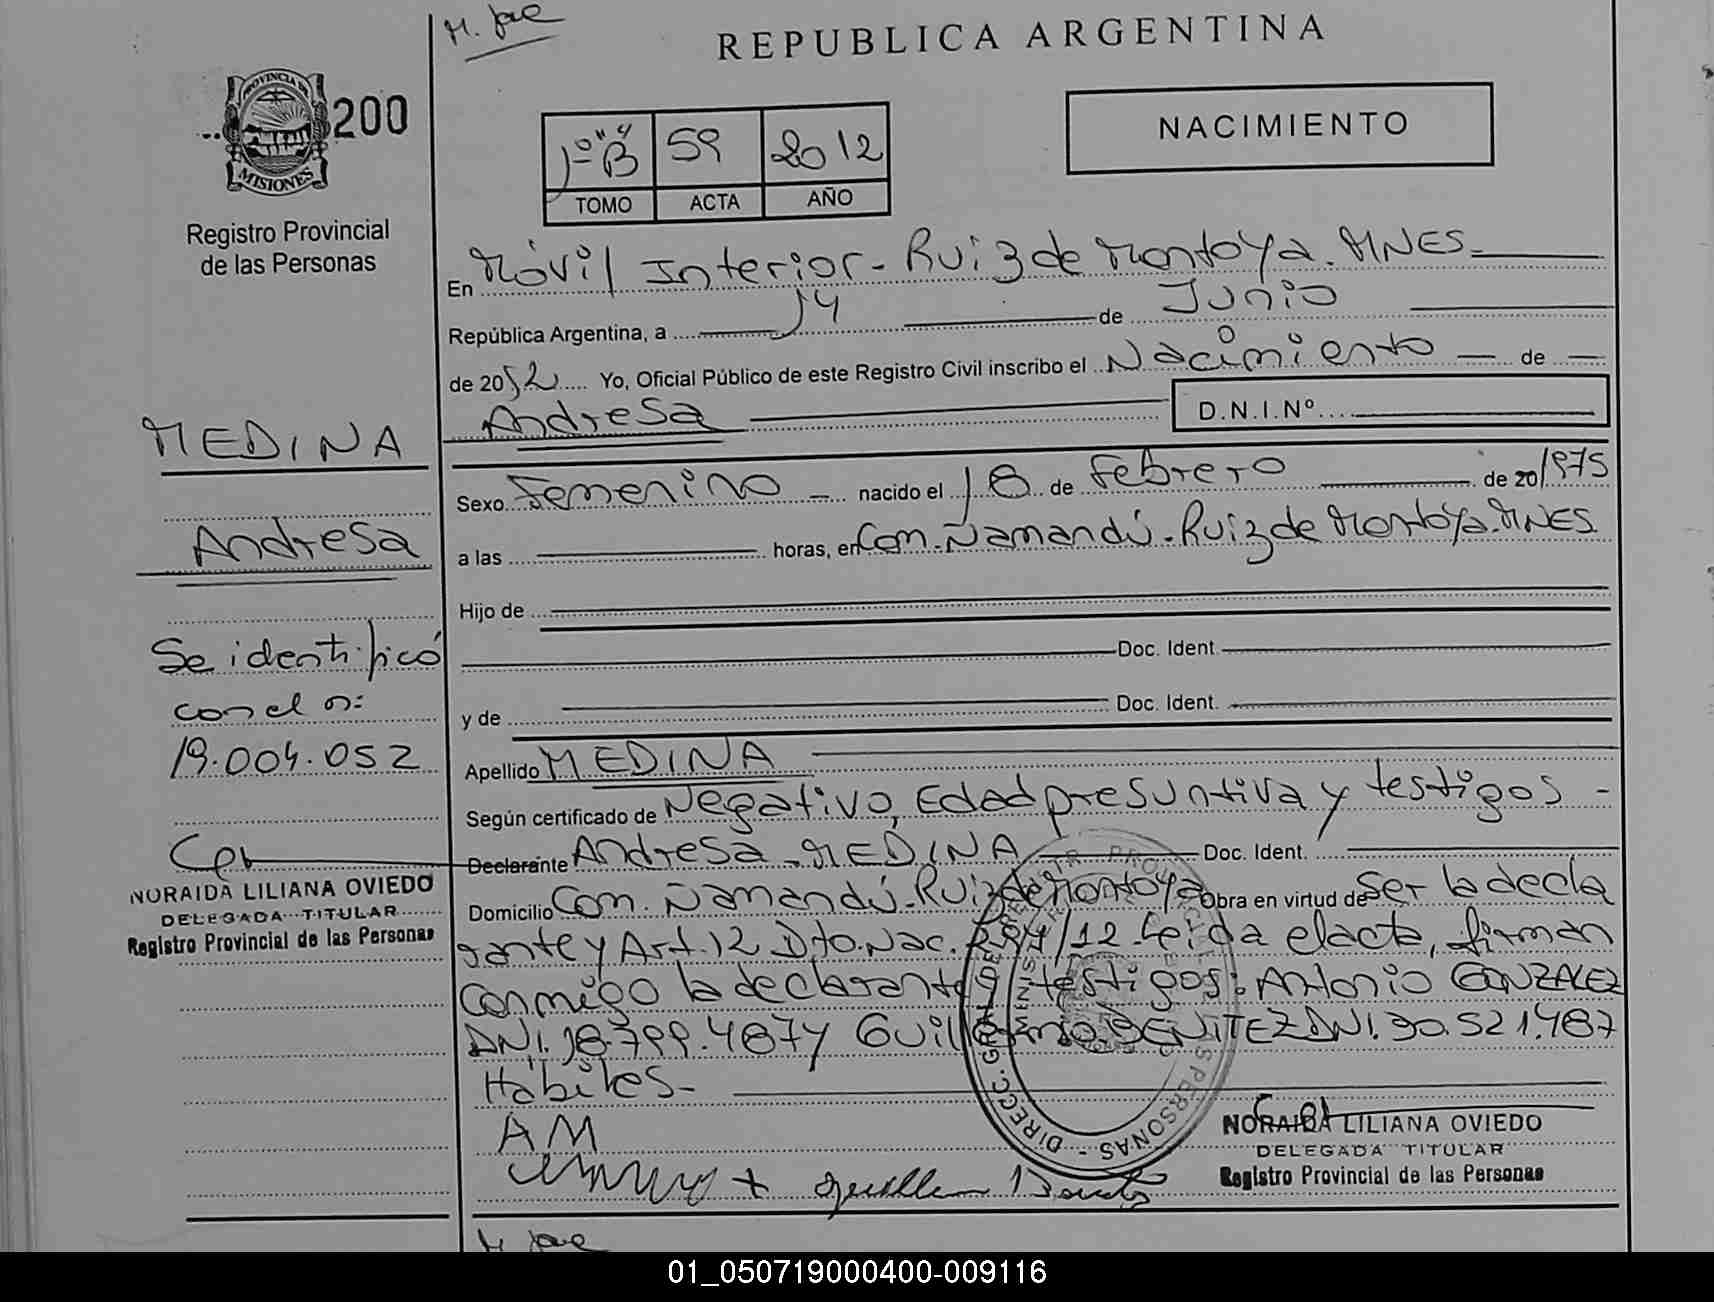 M. José
REPUBLICA ARGENTINA
PROVINCIA DE
MISIONES
200
Registro Provincial
de las Personas
1º "B" 59 2012
TOMO ACTA AÑO
NACIMIENTO
En Móvil Interior - Ruiz de Montoya. MNES.
República Argentina, a 14 de Junio
de 2012 Yo, Oficial Público de este Registro Civil inscribo el Nacimiento de
Andresa D.N.I.Nº
Sexo Femenino nacido el 18 de Febrero de 20/1975
a las horas, en Com. Ñamandú - Ruiz de Montoya. MNES.
Hijo de
Doc. Ident.
y de Doc. Ident.
Apellido MEDINA
Según certificado de Negativo, Edad presuntiva y testigos -
Declarante Andresa MEDINA Doc. Ident.
Domicilio Com. Ñamandú - Ruiz de Montoya Obra en virtud de Ser la decla
rante y Art. 12 Dto. Nac. /12. Leída el acta, firman
conmigo la declarante y testigos: Antonio GONZALEZ
DNI. 18.799.487 y Guillermo BENITEZ DNI. 30.521.487
Hábiles -
AM
NORAIDA LILIANA OVIEDO
DELEGADA TITULAR
Registro Provincial de las Personas
MEDINA
Andresa
Se identificó
con el n:
19.004.052
NORAIDA LILIANA OVIEDO
DELEGADA TITULAR
Registro Provincial de las Personas
M. José
01_050719000400-009116